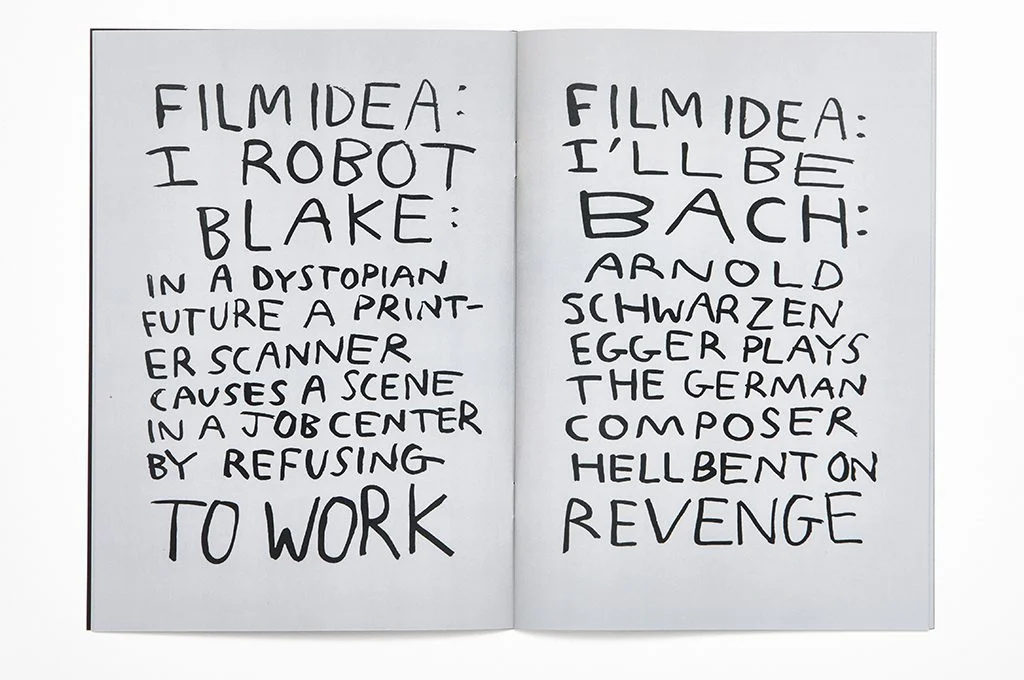 FILM IDEA:
I ROBOT
BLAKE:
IN A DYSTOPIAN
FUTURE A PRINT-
ER SCANNER
CAUSES A SCENE
IN A JOB CENTER
BY REFUSING
TO WORK
FILM IDEA:
I'LL BE
BACH:
ARNOLD
SCHWARZEN
EGGER PLAYS
THE GERMAN
COMPOSER
HELLBENT ON
REVENGE